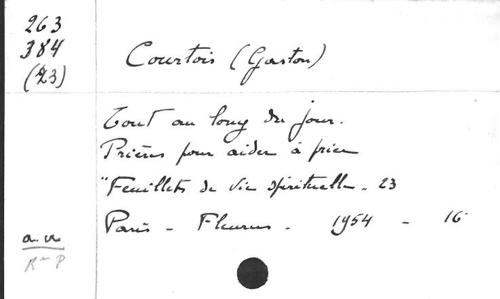 263
384
(23)
Courtois (Gaston)
Tout au long du jour.
Prières pour aider à prier
"Feuillets de vie spirituelle - 23
Paris - Fleurus - 1954 - 16
a.u
R P